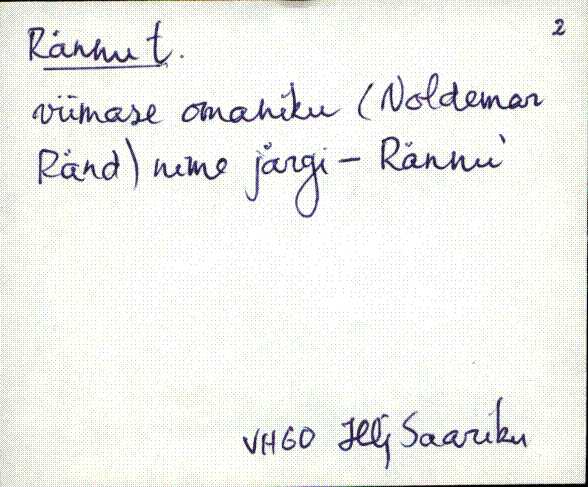 2
Rännu t.
viimase omaniku (Voldemar
Ränd) nime järgi – Rännu
VHGO Helj Saariku